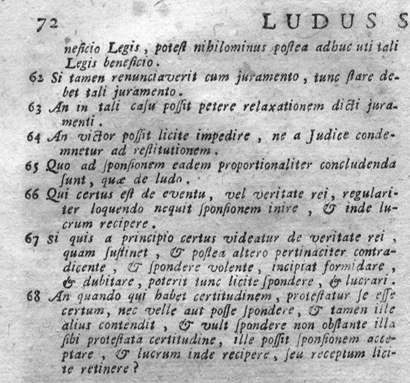 72 LUDUS S
neficio Legis, potest nihilominus postea adhuc uti tali
Legis beneficio.
62 Si tamen renunciaverit cum juramento, tunc stare de-
bet tali juramento.
63 An in tali casu possit petere relaxationem dicti jura-
menti.
64 An victor possit licite impedire, ne a Judice conde-
mnetur ad restitutionem.
65 Quo ad sponsionem eadem proportionaliter concludenda
sunt, quæ de ludo.
66 Qui certus est de eventu, vel veritate rei, regulari-
ter loquendo nequit sponsionem inire, & inde lu-
crum recipere.
67 Si quis a principio certus videatur de veritate rei,
quam sustinet, & postea altero pertinaciter contra-
dicente, & spondere volente, incipiat formidare,
& dubitare, poterit tunc licite spondere, & lucrari.
68 An quando qui habet certitudinem, protestatur se esse
certum, nec velle aut posse spondere, & tamen ille
alius contendit, & vult spondere non obstante illa
sibi protestata certitudine, ille possit sponsionem acce-
ptare, & lucrum inde recipere, seu receptum lici-
te retinere?